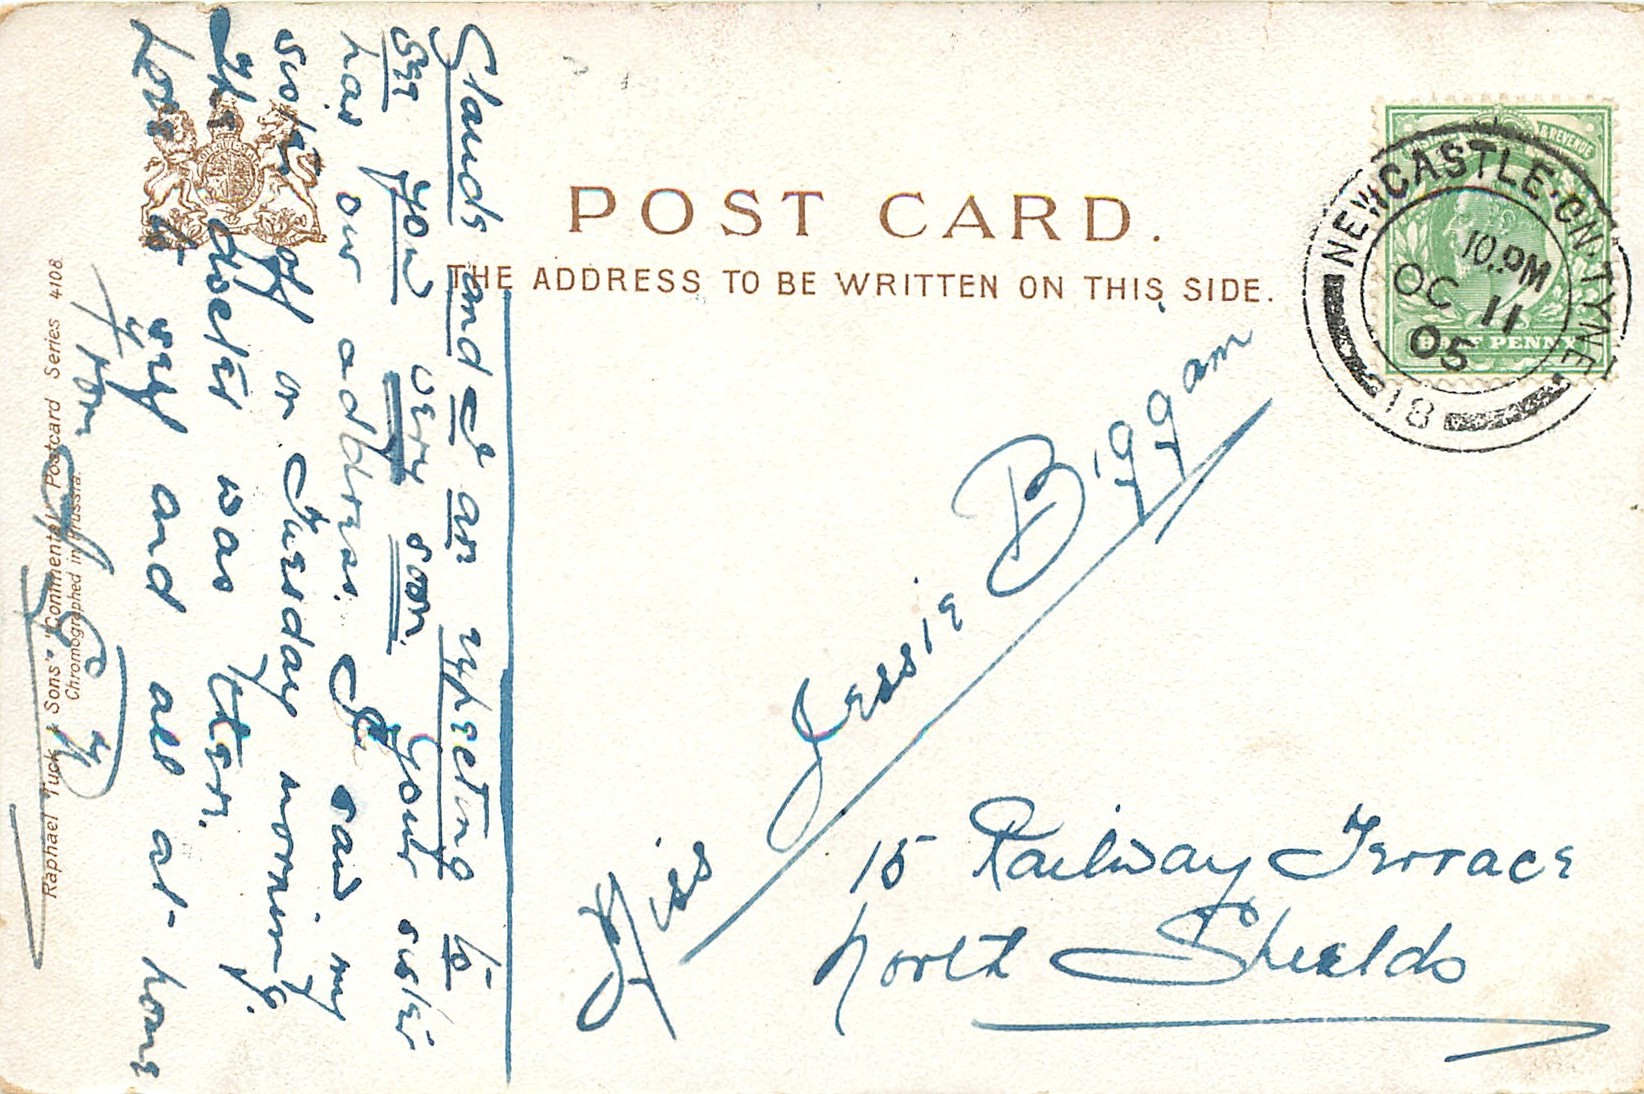 POST CARD.
THE ADDRESS TO BE WRITTEN ON THIS SIDE.
& REVENUE
HALF PENNY
NEWCASTLE·ON·TYNE
10. PM
OC 11
05
18
Miss Jessie Biggam
15 Railway Terrace
North Shields
Glands and I an expecting to
see you very soon. Your sister
has our address. I saw my
sister off on Tuesday morning.
The doctor was there.
Love to self and all at home
from
Raphael Tuck & Sons' "Continental" Postcard Series 4108
Chromographed in Prussia.